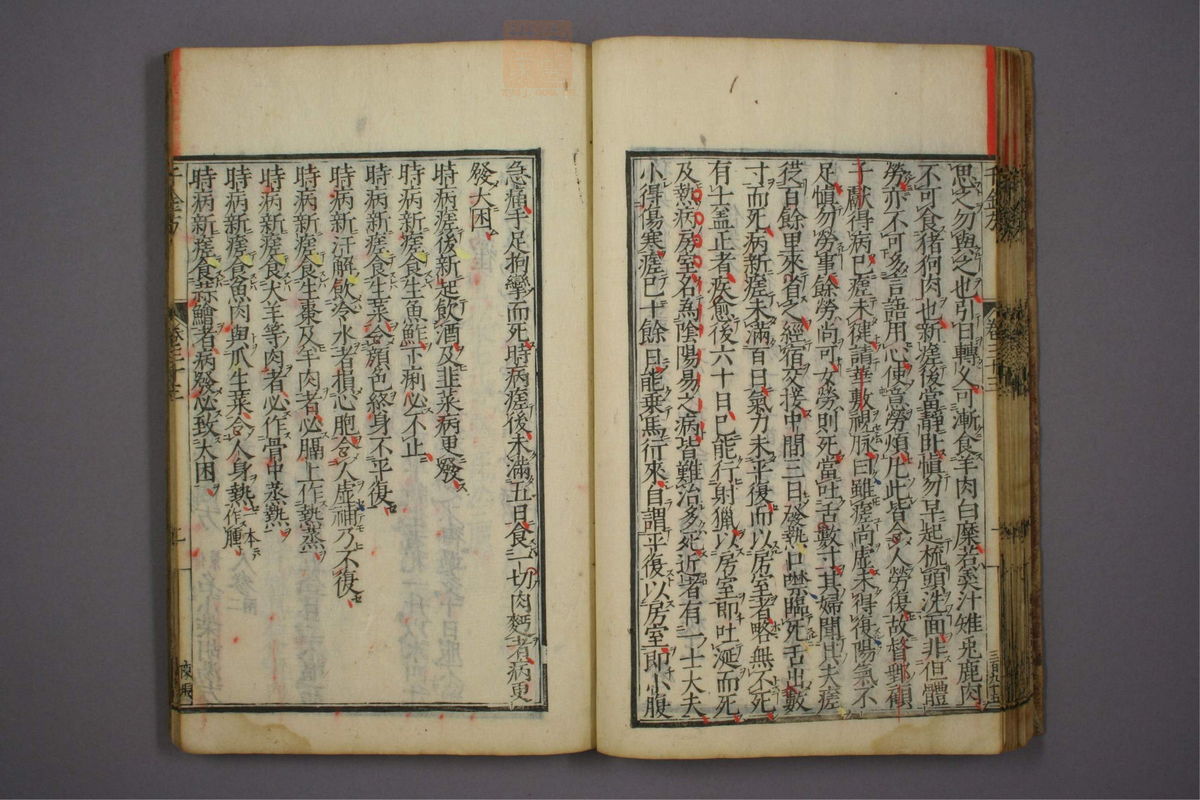 思之勿與之也引日轉久可漸食羊肉白糜若羹汁雉兎鹿肉
不可食猪狗肉也新瘥後當靜卧慎勿早起梳頭洗面非但體
勞亦不可多言語用心使意勞煩凡此皆令人勞復故督郵顧
子獻得病已瘥未健請華敷視脉曰雖瘥尚虛未得復陽氣不
足慎勿勞事餘勞尚可女勞則死當吐舌數寸其婦聞其夫瘥
從百餘里來省之經宿交接中間三日發熱口噤臨死舌出數
寸而死病新瘥未滿百日氣力未平復而以房室者略無不死
有士盖正者疾愈後六十日已能行射獵以房室即吐涎而死
及熱病房室名為陰陽易之病皆難治多死近者有一士大夫
小得傷寒瘥已十餘日能乗馬行來自謂平復以房室即小腹
急痛手足拘攣而死時病瘥後未滿五日食一切肉麫者病更
發大困
時病瘥後新起飲酒及韮菜病更發
時病新瘥食生魚鮓下痢必不止
時病新瘥食生菜令顔色終身不平復
時病新汗解飲冷水者損心胞令人虛補乃不復
時病新瘥食生棗及羊肉者必膈上作熱蒸
時病新瘥食犬羊等肉者必作骨中蒸熱
時病新瘥食魚肉與瓜生菜令人身熱
時病新瘥食蒜鱠者病發必致大困
千金方